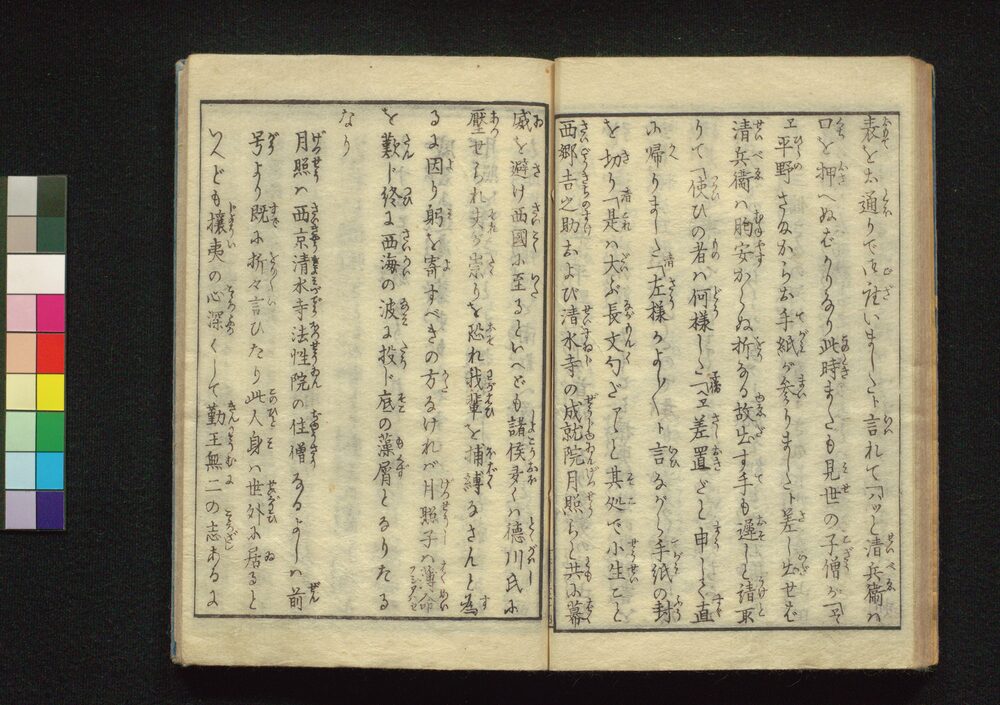 表をお通りで御座いましたト言れて「ハツと清兵衞ハ
口を押へぬむかりなり此時またも見世の子僧が「ヱ
ヱ平野さゐからお手紙が参りましたト差し出せば
清兵衞ハ胸安からぬ折なる故出す手も遅しと請取
りて「使ひの者ハ何様した「ヱ差置どと申して直
に帰りました 清「左様かよし〱ト言ながら手紙の封
を切り 清「是ハ大ぶ長文句だ〱と其処で小生こと
西郷吉之助および清水寺の成就院月照らと共に幕
威を避け西國に至るといへども諸侯多くハ徳川氏に
壓せられ夫が祟りを恐れ我輩を捕縛なさんと為
るに因り躬を寄すべきの方なけれバ月照子ハ薄命
を歎じ終に西海の波に投じ底の藻屑となりたる
なり
月照ハ西京清水寺法性院の住僧なるよしハ前
号より既に折々言ひたり此人身ハ世外に居ると
いへども攘夷の心深くして勤王無二の志あるに